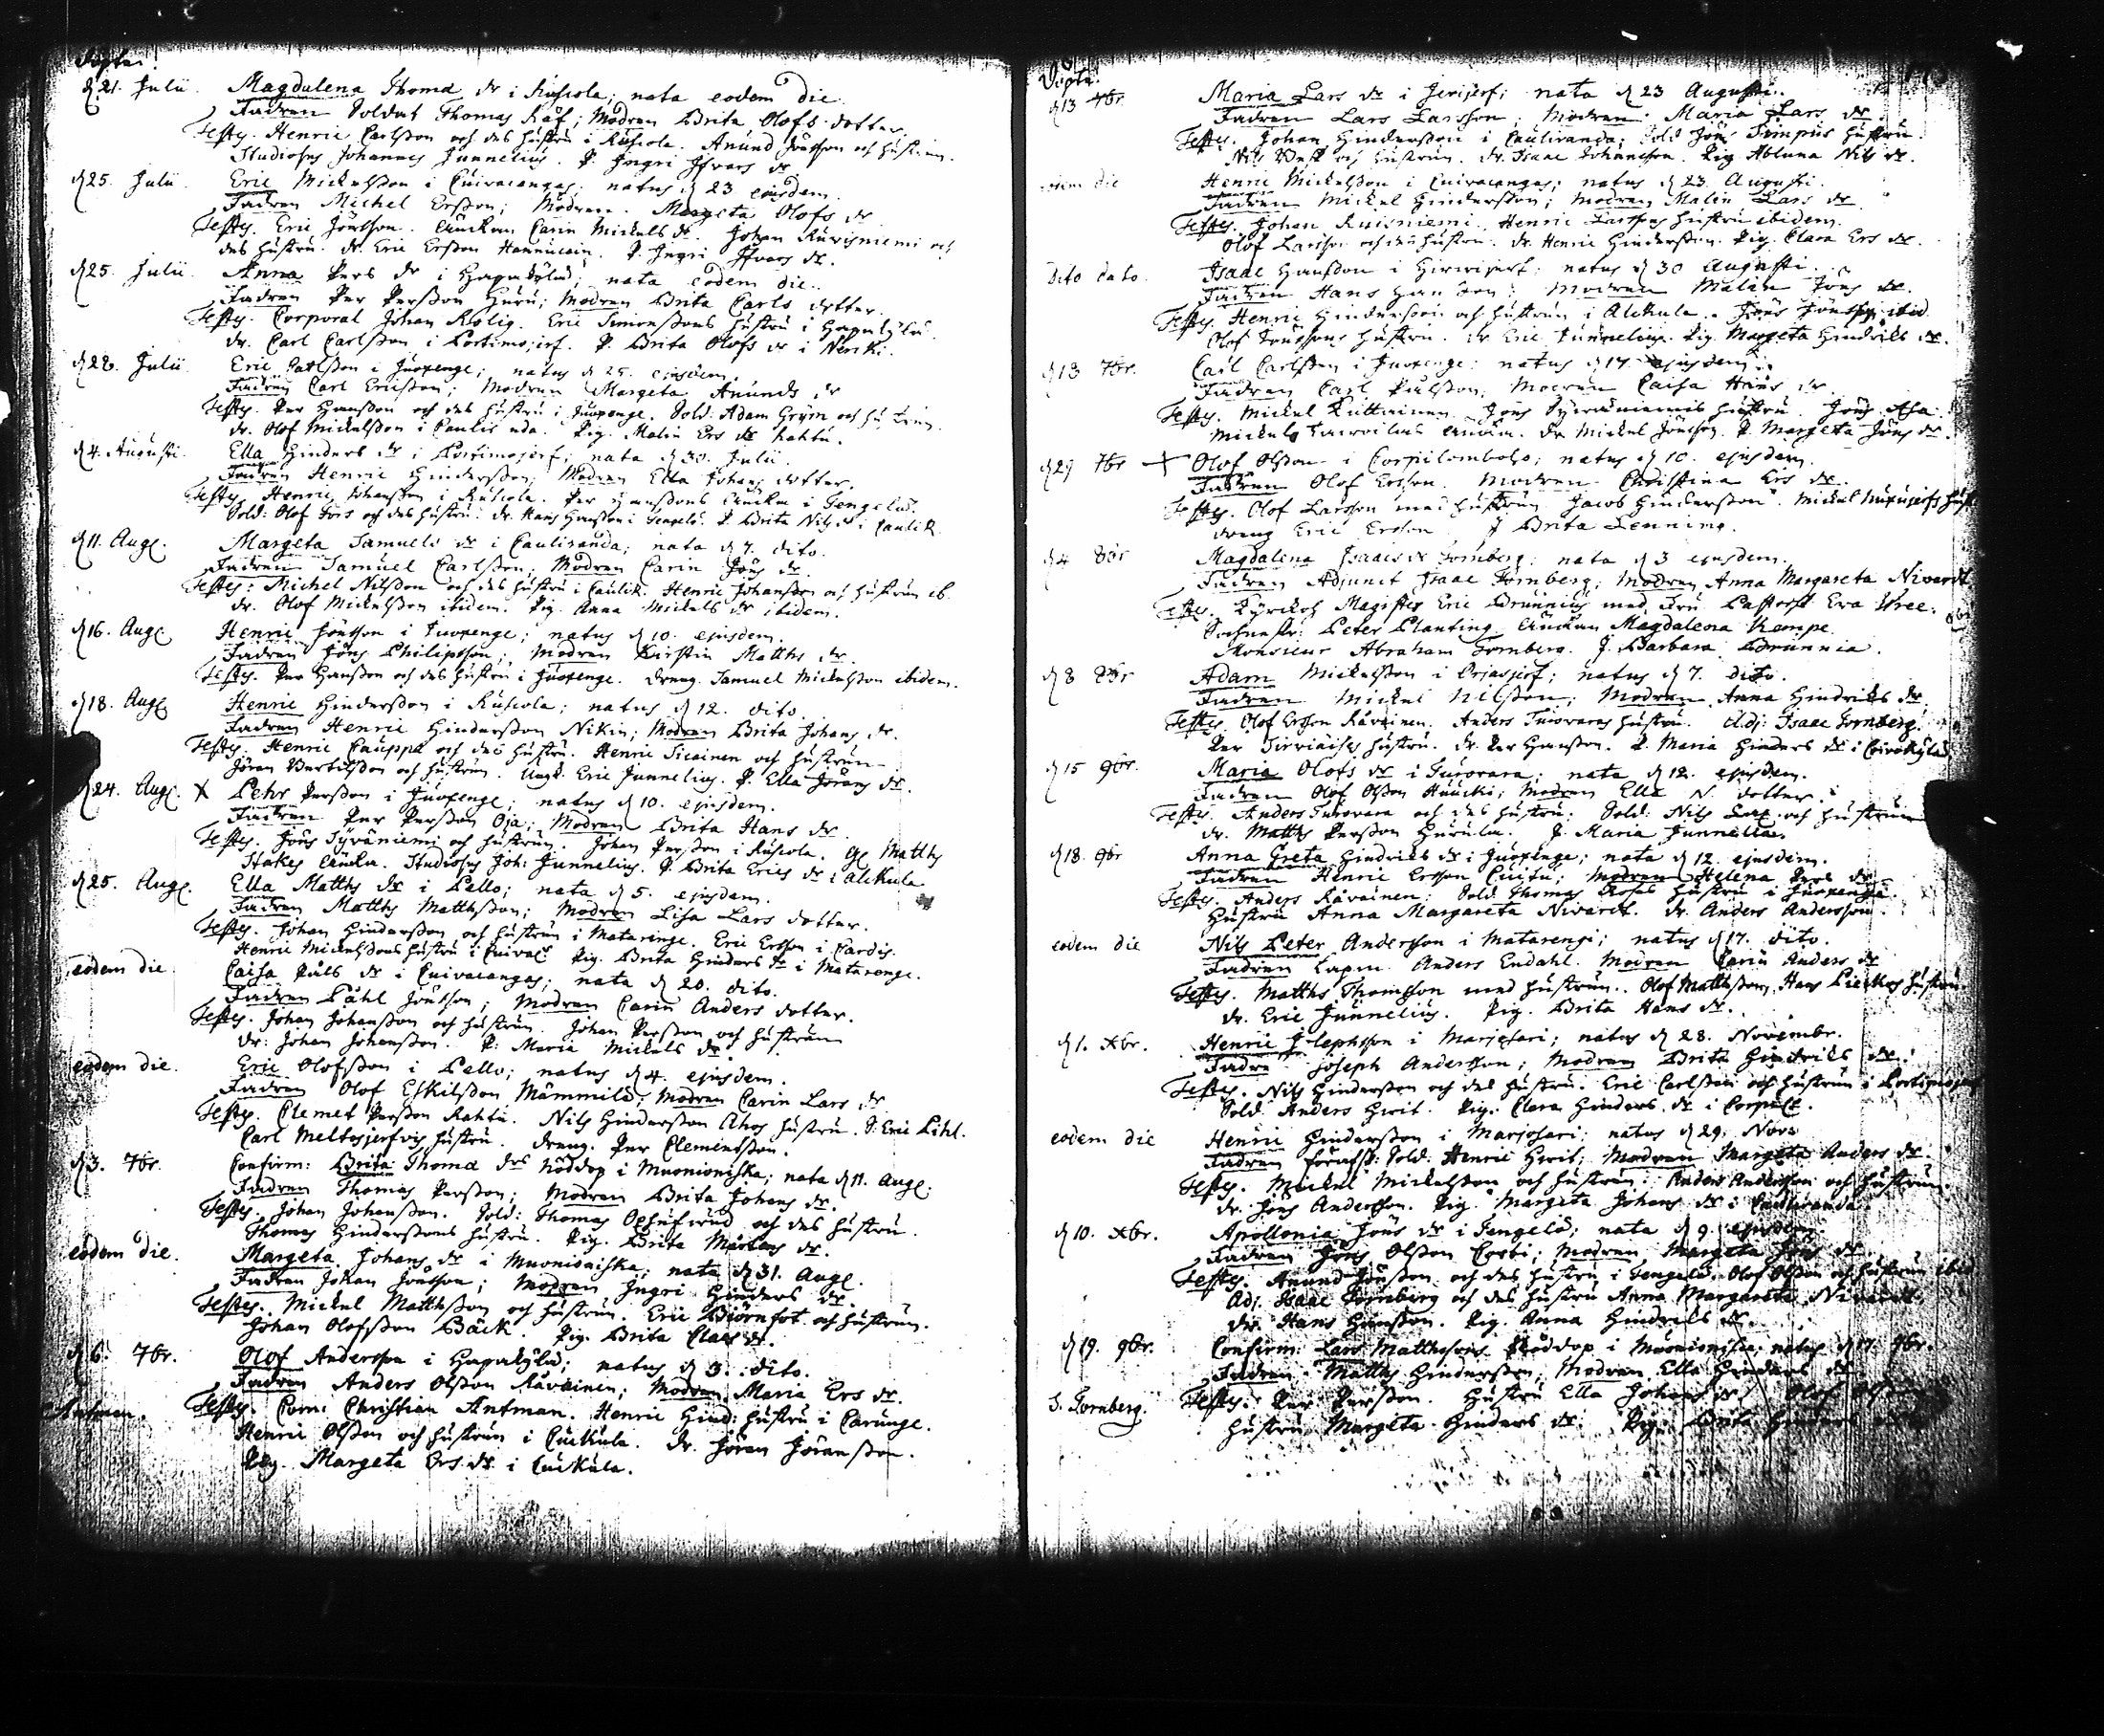 Döpte.
d 21. Julii. Magdalena Thomæ dr i Ruskola; nata eodem die.
Fadren Soldat Thomas Räf; Modren Brita Olofs dotter.
Testes. Henric Carlsson och des hustru i Ruskola. Anund Jönsson och hustrun.
Studiosus Johannes Junnelius. P. Ingri Ifvars dr
d 25. Julii. Eric Mickelsson i Cuivacangas; natus d 23 ejusdem.
Fadren Michel Ersson; Modren. Margeta Olofs dr
Testes. Eric Jönsson. Änckan Carin Mickels dr. Johan Ruvisniemi och
des hustru. dr. Eric Ersson Hannucain. P. Ingri Ifvars dr.
d 25. Julii. Anna Pers dr i Hapakylä; nata eodem die.
Fadren Per Persson Huru; Modren Brita Carls dotter.
Testes. Corporal Johan Rolig. Eric Simonssons hustru i Hapakylä.
dr. Carl Carlsson i Portimojerf. P. Brita Olofs dr i Neriki.
d 28. Julii Eric Carlsson i Juoxenge; natus d 25. ejusdem.
Fadren Carl Ericsson; Modren Margeta Anunds dr
Testes. Per Hansson och des hustru i Juoxenge. Sold: Adam Grym och hustrun.
dr. Olof Mickelsson i Cauliranda. Pig. Malin Ers dr
d 4. Augusti. Ella Hinders dr i Portimojerf; nata d 30. Julii.
Fadren Henric Hindersson; Modren Ella Johans dotter.
Testes. Henric Johansson i Ruskola. Per Hanssons Äncka i Tengelä.
Sold: Olof Fors och des hustru. dr. Hans Hansson i Tengelä. P. Brita Nils dr i Caulir.
d 11. Aug. Margeta Samuels dr i Cauliranda; nata d 7. dito.
Fadren Samuel Carlsson; Modren Carin Jöns dr.
Testes: Michel Nilsson och des hustru i Caulir. Henric Johansson och hustrun ib.
dr. Olof Mickelsson ibidem. Pig. Anna Mickels dr ibidem.
d 16. Aug. Henric Jönsson i Juoxenge; natus d 10. ejusdem.
Fadren Jöns Philipsson; Modren Kirstin Matths dr.
Testes. Per Hansson och des hustru i Juoxenge. Dreng. Samuel Mickelsson ibidem.
d 18. Aug. Henric Hindersson i Ruskola; natus d 12. dito.
Fadren Henric Hindersson Nikin; Modren Brita Johans dr.
Testes. Henric Cauppi och des hustru. Henric Sicainen och hustrun
Jöran Bertilsson och hustrun. Ungk. Eric Junnelius. P. Ella Jörans dr.
d 24. Aug. X Pehr Persson i Juoxenge; natus d 10. ejusdem.
Fadren Per Persson Oja; Modren Brita Hans dr.
Testes. Jöns Tyväniemi och hustrun. Johan Persson i Ruskola. Matths
Stakes Äncka. Studiosus Joh: Junnelius. P. Brita Erics dr i Alckula
d 25. Aug. Ella Matths dr i Pello; nata d 5. ejusdem.
Fadren Matths Matthsson; Modren Lisa Lars dotter.
Testes. Johan Hindersson och hustrun i Matarenge. Eric Ersson i Cardis.
Henric Mickelssons hustru i Cuivac. Pig. Brita Hinders dr i Matarenge.
eodem die. Caisa Påls dr i Cuivacangas; nata d 20. dito.
Fadren Påhl Jönsson; Modren Carin Anders dotter.
Testes. Johan Johansson och hustrun. Johan Persson och hustrun
dr: Johan Johansson. P: Maria Mickels dr.
eodem die. Eric Olofsson i Pello; natus d 4. ejusdem.
Fadren Olof Eskilsson Mämmilä; Modren Carin Lars dr
Testes. Clemet Persson Rahtu. Nils Hindersson Ahos hustru. S: Eric Pihl.
Carl Meltojerfvis hustru. Dreng. Per Clemensson.
d 3. 7br. Confirm: Brita Thomæ drs Nöddop i Muonioniska; nata d 11. Aug.
Fadren Thomas Persson; Modren Brita Johans dr.
Testes. Johan Johansson. Sold: Thomas och des hustru.
Thomas Hinderssons hustru. Pig. Brita Mårtens dr.
eodem die. Margeta Johans dr i Muonioniska; nata d 31. Aug.
Fadren Johan Jönsson; Modren Ingri Hinders dr.
Testes. Mickel Matthsson och hustrun. Eric Biörnfot och hustrun.
Johan Olofsson Bäck. Pig. Brita Claes dr.
d 6. 7br. Olof Andersson i Hapakylä; natus d 3. dito.
Fadren Anders Olsson Rävainen; Modren Maria Ers dr.
Antman. Testes. Com: Christian Antman. Henric Hind: hustru i Carunge.
Henric Olsson och hustrun i Cuckula. dr. Jöran Jöransson.
Pig. Margeta Ers dr i Cuckula.
Döpte.
d 13 7br. Maria Lars dr i Jerijerf; nata d 23 Augusti.
Fadren Lars Larsson; Modren Maria Lars dr.
Testes. Johan Hindersson i Cauliranda; Sold Jöns Simpus hustru.
Nils och hustrun. dr. Isaac Johansson. Pig. Abluna Nils dr.
eodem die Henric Mickelsson i Cuivacangas; natus d 23. Augusti.
Fadren Mickel Hindersson; Modren Malin Lars dr
Testes. Johan Ruisniemi. Henric Larssons hustru ibidem.
Olof Larsson och des hustru. dr. Henric Hindersson. Pig. Clara Ers dr.
Dito dato. Isaac Hansson i Hirvijerf; natus d 30 Augusti.
Fadren Hans Hansson; Modren Malin Jöns dr.
Testes. Henric Hindersson och hustrun i Alckula. Jöns Jönsson ibid.
Olof Jönssons hustru. dr Eric Junnelius. Pig. Margeta Hindriks dr.
d 13 7br. Carl Carlsson i Juoxenge; natus d 17 ejusdem.
Fadren Carl Pålsson. Modren Caisa Hans dr.
Testes. Mickel Kuttainen. Jöns Tyväniemis hustru. Jöns
Mickels Äncka. dr Mickel Jönsson. P. Margeta Jöns dr.
d 29 7br Olof Olsson i Corpilombolo; natus d 10. ejusdem.
Fadren Olof Ersson. Modren Christina Ers dr.
Testes. Olof Larsson med hustrun. Jacob Hindersson. Mickel hust.
dreng Eric Ersson J Brita Lenning.
d 4 8br Magdalena Isaacs dr Fornberg; nata d 3 ejusdem.
Fadren Adjunct Isaac Fornberg; Modren Anna Margareta Nivardt.
Testes. Kyrckoh. Magister Eric Brunnius med Fru Pastorsk Eva Wree.
Sochnskr: Peter Planting. Änckan Magdalena Kempe.
Monsieur Abraham Fornberg. J. Barbara Brunnia.
d 8 8br Adam Mickelsson i Orjasjerf; natus d 7. dito.
Fadren Mickel Nilsson; Modren Anna Hindriks dr
Testes. Olof Ersson Rävainen. Anders Turovaras hustru. Adj: Isaac Fornberg.
Per hustru. dr. Per Hansson. P. Maria Hinders dr i
d 15 9br. Maria Olofs dr i Turovara; nata d 12. ejusdem.
Fadren Olof Olsson Haucki; Modren Ella N. dotter.
Testes. Anders Turovara och des hustru. Sold: Nils Lax och hustrun
dr. Matths Persson Hurula. J. Maria Junnelia.
d 18. 9br Anna Greta Hindriks dr i Juoxenge; nata d 12 ejusdem.
Fadren Henric Ersson Cuitu; Modren Helena Pers dr
Testes. Anders Rävainen; Sold Thomas hustru i Juoxenge.
Hustru Anna Margareta Nivardt. dr. Anders Andersson.
eodem die Nils Peter Andersson i Matarengi; natus d 17. dito.
Fadren Lapm. Anders Endahl. Modren Carin Anders dr
Testes. Matths Thomsson med hustrun. Olof Matthsson. Hans hustru.
dr. Eric Junnelius. Pig. Brita Hans dr.
d 1. Xbr. Henric Josephsson i Marjosari; natus d 28. Novembr.
Fadre Joseph Andersson; Modren Brita Hindriks dr.
Testes. Nils Hindersson och des hustru. Eric Carlsson och hustrun i Portimojerf
Sold Anders Hwit. Pig. Clara Hinders dr i
eodem die Henric Hindersson i Marjosari; natus d 29. Nov:
Fadren Sold: Henric Hwit; Modren Margeta Anders dr.
Testes. Mickel Mickelsson och hustrun. Anders Andersson och hustrun.
dr. Jöns Andersson. Pig. Margeta Johans dr i Cauliranda.
d 10. Xbr. Apollonia Jöns dr i Tengelä; nata d 9. ejusdem
Fadren Jöns Olsson Corbi; Modren Margeta Jöns dr
Testes. Anund Jönsson och des hustru i Tengelä. Olof Olsson och hustrun ibid
Adj. Isaac Fornberg och des hustru Anna Margareta Nivardt.
dr. Hans Hansson. Pig. Anna Hindriks dr.
d 19. 9br. Confirm: Lars Matthssons Nöddop i Muonioniska; natus d 17. 9br.
Fadren Matths Hindersson; Modren Ella Hinders dr
I. Fornberg. Testes: Per Persson. Hustru Ella Johans dr. Olof
hustru Margeta Hinders dr. Pig. Brita Hinders